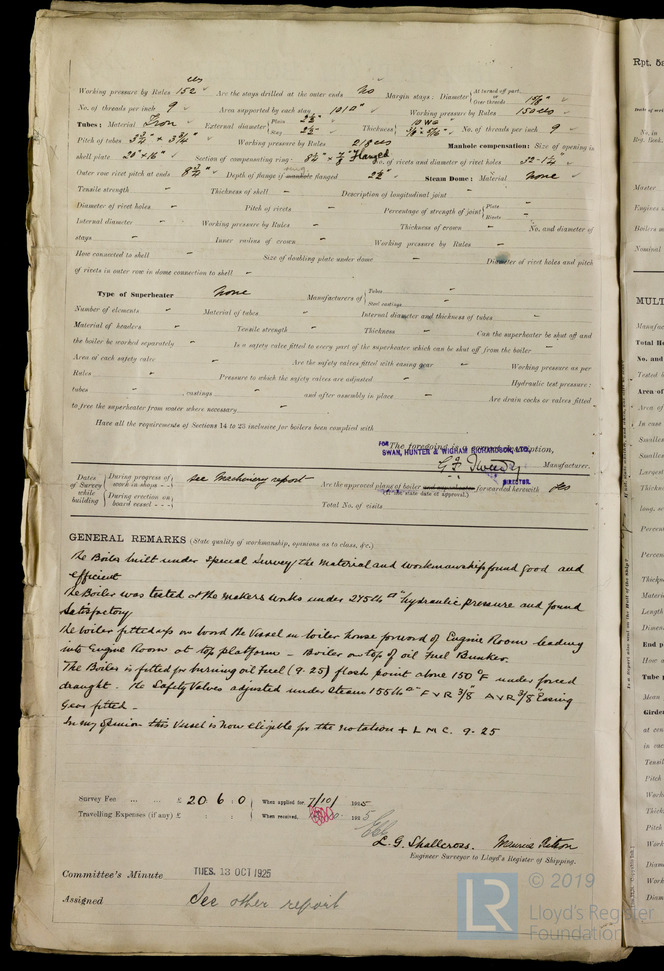 Working pressure by Rules 152 lbs Are the stays drilled at the outer ends No Margin stays: Diameter { At turned off part, or Over threads 1 5/8" "
No. of threads per inch 9 Area supported by each stay 101 □" Working pressure by Rules 150 lbs
Tubes: Material Iron External diameter { Plain 2½" Stay 2½" Thickness { 10 WG No. of threads per inch 9
Pitch of tubes 3¾" x 3¾" Working pressure by Rules 218 lbs Manhole compensation: Size of opening in
shell plate 20" x 16" Section of compensating ring: Flanged No. of rivets and diameter of rivet holes 32 - 1¼"
Outer row rivet pitch at ends 8¾" Depth of flange if manhole flanged 2½" Steam Dome: Material None
Tensile strength - Thickness of shell - Description of longitudinal joint -
Diameter of rivet holes - Pitch of rivets - Percentage of strength of joint { Plate - Rivets -
Internal diameter - Working pressure by Rules - Thickness of crown - No. and diameter of
stays - Inner radius of crown - Working pressure by Rules -
How connected to shell - Size of doubling plate under dome - Diameter of rivet holes and pitch
of rivets in outer row in dome connection to shell -
Type of Superheater None Manufacturers of { Tubes - Steel castings -
Number of elements - Material of tubes - Internal diameter and thickness of tubes -
Material of headers - Tensile strength - Thickness - Can the superheater be shut off and
the boiler be worked separately - Is a safety valve fitted to every part of the superheater which can be shut off from the boiler -
Area of each safety valve - Are the safety valves fitted with easing gear - Working pressure as per
Rules - Pressure to which the safety valves are adjusted - Hydraulic test pressure:
tubes - , castings - and after assembly in place - Are drain cocks or valves fitted
to free the superheater from water where necessary -
Have all the requirements of Sections 14 to 23 inclusive for boilers been complied with
The foregoing is a correct description,
FOR SWAN, HUNTER & WIGHAM RICHARDSON, LTD.
G. F. Tweedy Manufacturer.
DIRECTOR.
Dates of Survey while building { During progress of work in shops - - } see Machinery report Are the approved plans of boiler and superheater forwarded herewith Yes
(If not state date of approval.)
{ During erection on board vessel - - - } Total No. of visits
GENERAL REMARKS (State quality of workmanship, opinions as to class, &c.)
The Boiler built under Special Survey the material and workmanship found good and
efficient
The Boiler was tested at the makers works under 275 lb □" hydraulic pressure and found
Satisfactory.
The boiler fitted up on board the Vessel in boiler house forward of Engine Room leading
into Engine Room at top platform - Boiler on top of oil Fuel Bunker.
The Boiler is fitted for burning oil Fuel (9-25) flash point above 150°F under forced
draught. The Safety Valves adjusted under steam 155 lb □" F V R 3/8" A V R 3/8" Easing
Gear fitted -
In my opinion this Vessel is now eligible for the notation + L M C. 9-25
Survey Fee ... ... £ 20 : 6 : 0 When applied for, 7/10/ 1925
Travelling Expenses (if any) £ : : When received, 1925
L. G. Shallcross.
Engineer Surveyor to Lloyd's Register of Shipping.
Committee's Minute TUES. 13 OCT 1925
Assigned See other report
LR © 2019
Lloyd's Register
Foundation
Rpt. 5a
MULT